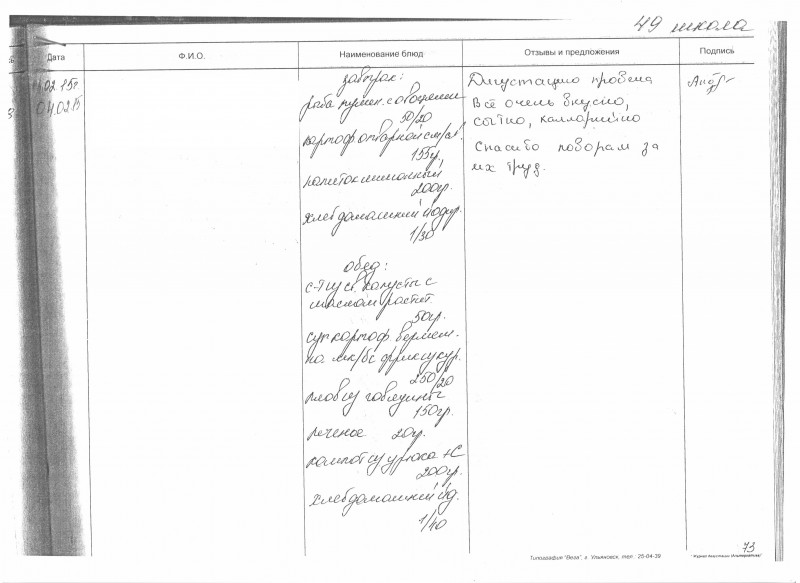 49 школа
Дата Ф.И.О. Наименование блюд Отзывы и предложения Подпись
04.02.15
завтрак:
рыба тушен. с овощами
50/20
картоф отварной см/сл.
155гр.
напиток
200гр.
хлеб домашний йодир.
1/30
обед:
с-т из св. капусты с
маслом растит.
50гр.
суп картоф. вермеш.
на мк/бс фрик. кур.
250/20
плов из говядины
150гр.
печенье 20гр.
компот из урюка +С
200гр.
хлеб домашний йод.
1/40
Дигустацию провела
Всё очень вкусно,
сытно, каллорийно
Спасибо поворам за
их труд.
73
Типография "Вега", г. Ульяновск, тел.: 25-04-39